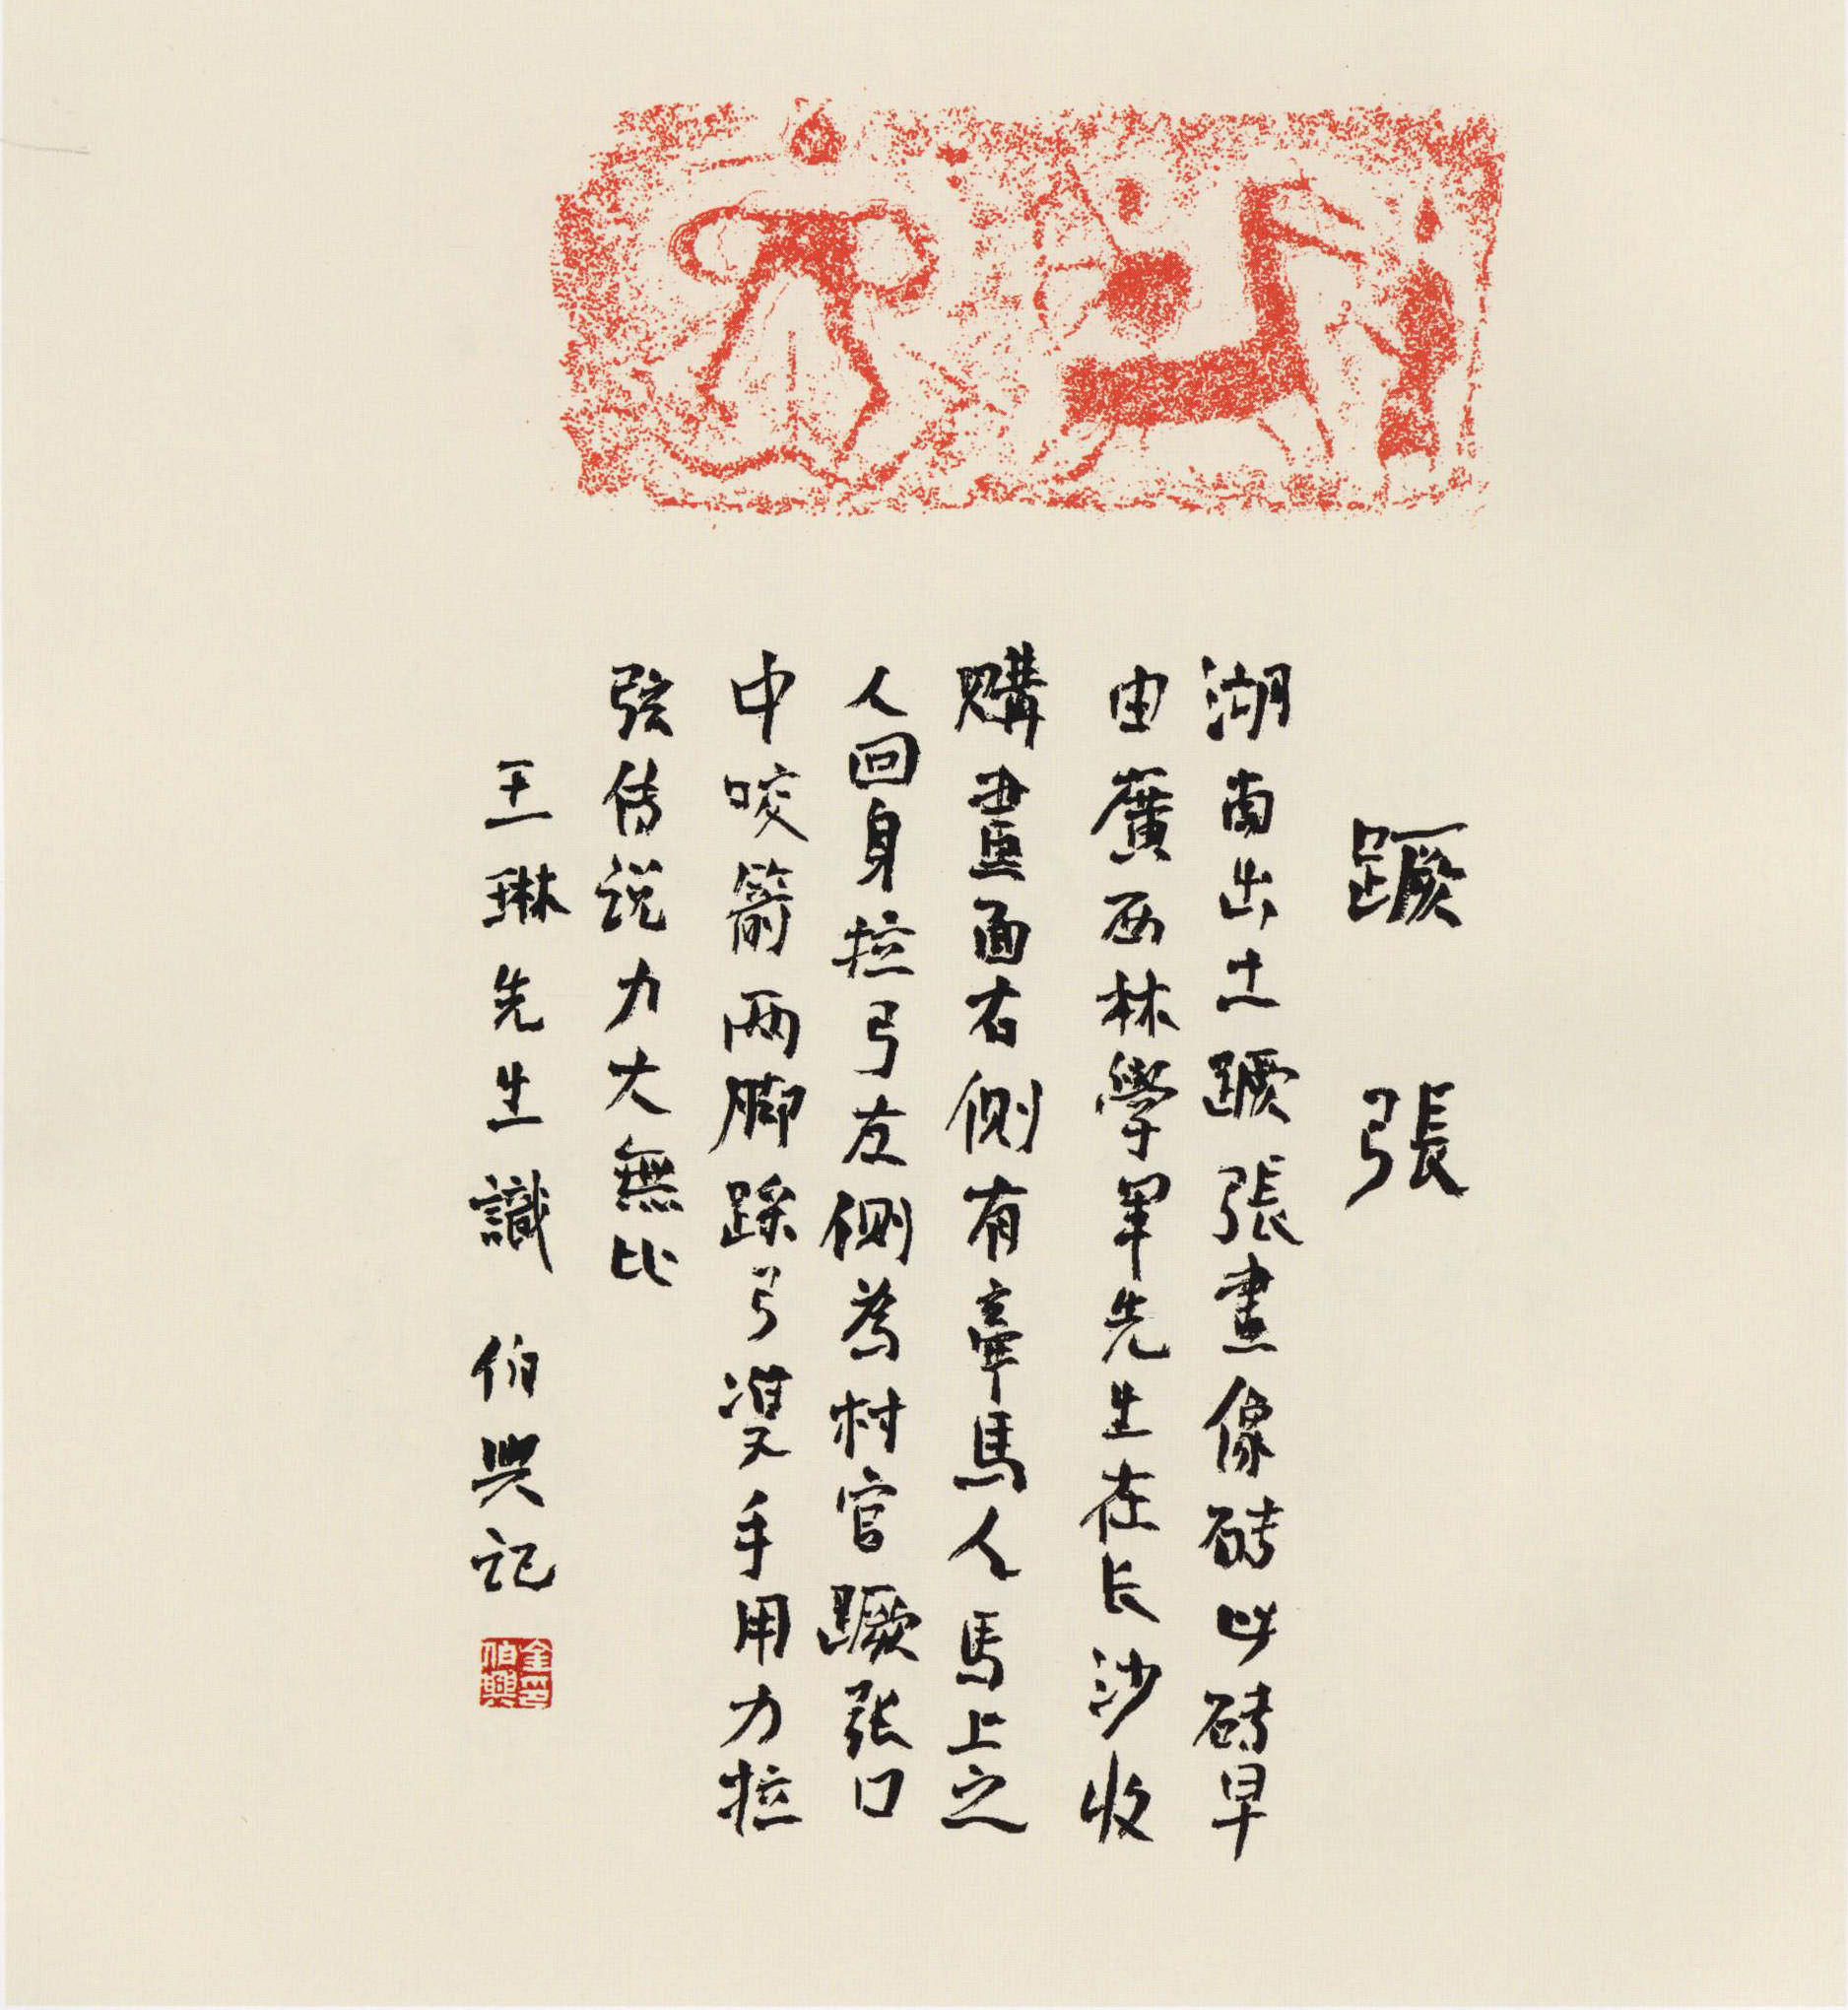 蹶張
湖南出土蹶張畫像磚此磚早
由廣西林學軍先生在长沙收
購畫面右側有牽馬人馬上之
人回身拉弓左側為村官蹶张口
中咬箭两脚踩弓雙手用力拉
弦传说力大無比
王琳先生識 伯興记
金
伯興